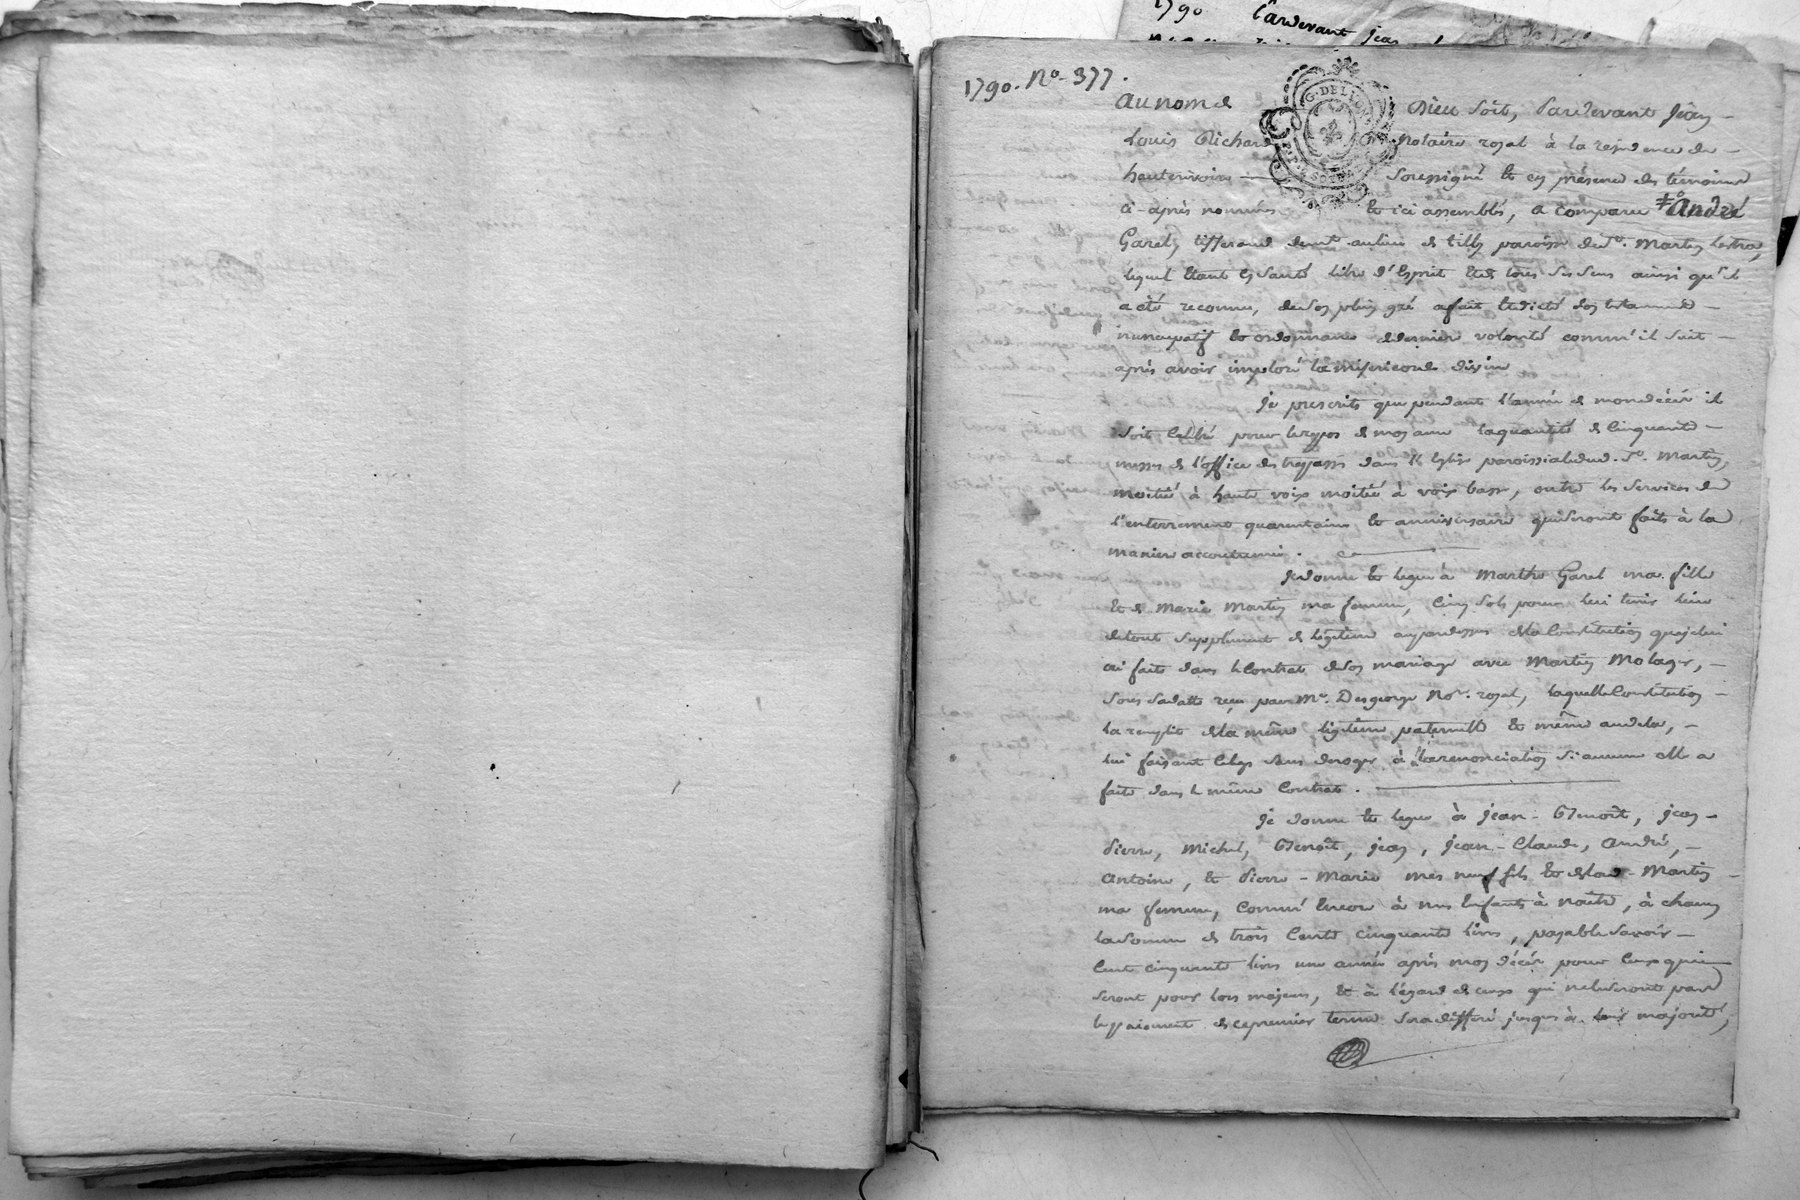 1790 Pardevant jean
1790. No. 377.
G. DE LYON
au nom de Dieu soit, Pardevant jean
Louis Richard Notaire royal à la residence de
hauterivoire soussigné et en présence des témoins
ci-après nommés et ici assemblés, a comparu ‡ andré
Garel, tisserand demt. au lieu de tilly paroisse de St. Martin lestra,
lequel étant en santé libre d'esprit et de tous ses sens ainsi qu'il
a été reconnu, de son plein gré a fait et dicté son testament
nuncupatif et ordonnance de dernier volonté comm'il suit
après avoir imploré la misericorde divine
je prescrits que pendant l'année de mon décér il
soit célébré pour le repos de mon ame la quantité de cinquante
messes de l'office des trepassés dans l'église paroissiale dud. St. Martin,
moitié à haute voix moitié à voix basse, outre les services de
l'enterrement quarantaine et anniversaire qui seront faits à la
maniere accoutumée.
je donne et legue à Marthe Garel ma fille
et de Marie Martin ma femme, cinq sols pour lui tenir lieu
de tout supplément de légitime au par dessus de la constitution que je lui
ai faite dans le contrat de son mariage avec Martin Molager,
sous sa datte reçu par Me. Desgeorge Nore. royal, laquelle constitution
la remplit de la même légitime paternelle et même au dela,
lui faisant ce legs sans deroger à la renonciation si aucune elle a
faite dans le même contrat.
je donne et legue à jean-Benoît, jean
Pierre, Michel, Benoît, jean, jean-Claude, André,
Antoine, et Pierre-Marie mes neuf fils et de lad. Martin
ma femme, comm'encore à nos enfants à naître, à chacun
la somme de trois cents cinquante livres, payable savoir
cent cinquante livres une année après mon décér pour ceux qui
seront pour lors majeurs, et à l'égard de ceux qui ne le seront pas
le paiement de ce premier terme sera differé jusques à leur majorité,